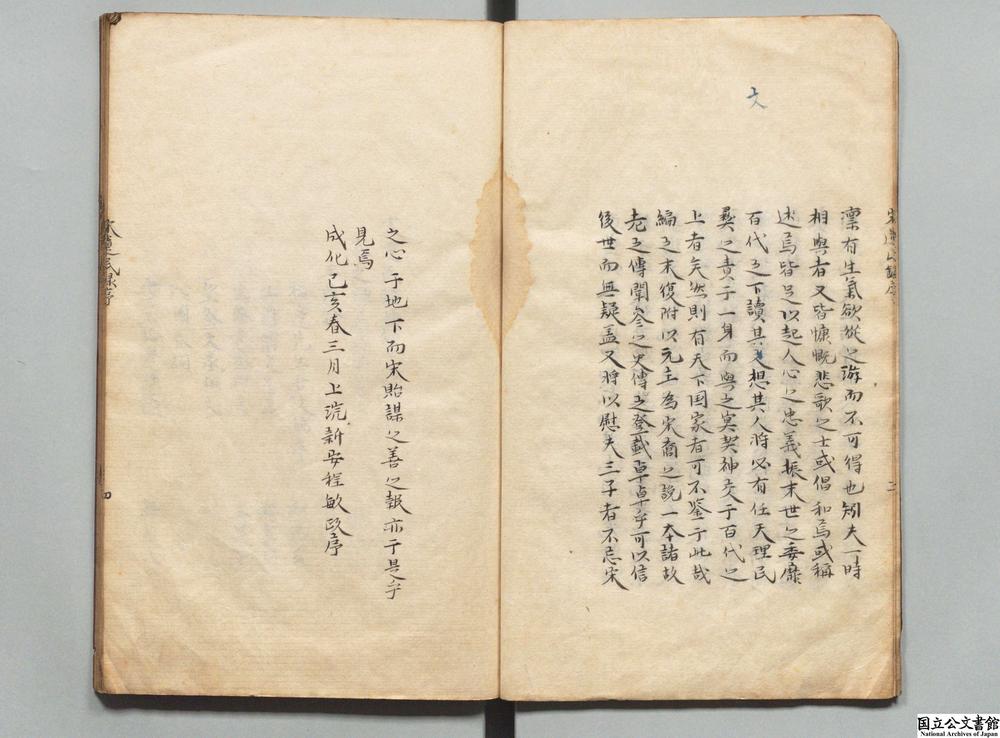 文
凛有生氣欲從之游而不可得也矧夫一時
相與者又皆慷慨悲歌之士或倡和焉或稱
述焉皆足以起人心之忠義振末世之委靡
百代之下讀其文想其人將必有任天理民
彝之責于一身而與之冥契神交于百代之
上者矣然則有天下国家者可不鉴于此哉
編之末復附以元主為宋裔之說一本諸故
老之傳聞参之史傳之登載卓卓乎可以信
後世而無疑盖又将以慰夫三子者不忘宋
之心于地下而宋貽謀之善之報亦于是乎
見焉
成化己亥春三月上浣新安程敏政序
宋遺民録序
四
国立公文書館
National Archives of Japan